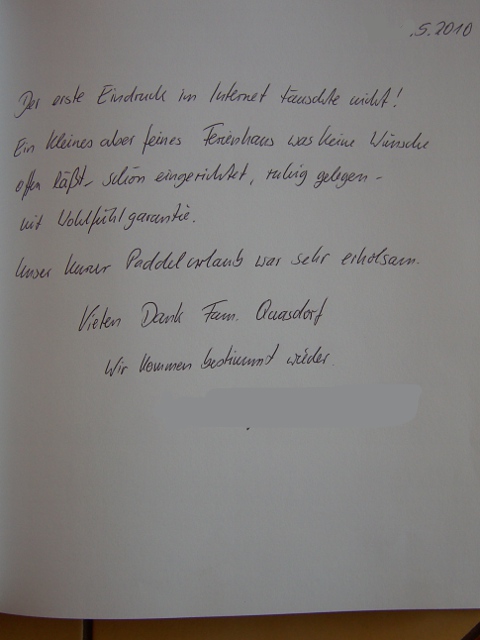 .5.2010
Der erste Eindruck im Internet täuschte nicht!
Ein kleines aber feines Ferienhaus was keine Wünsche
offen läßt - schön eingerichtet, ruhig gelegen -
mit Wohlfühlgarantie.
Unser kurzer Paddelurlaub war sehr erholsam.
Vielen Dank Fam. Quasdorf
Wir kommen bestimmt wieder.